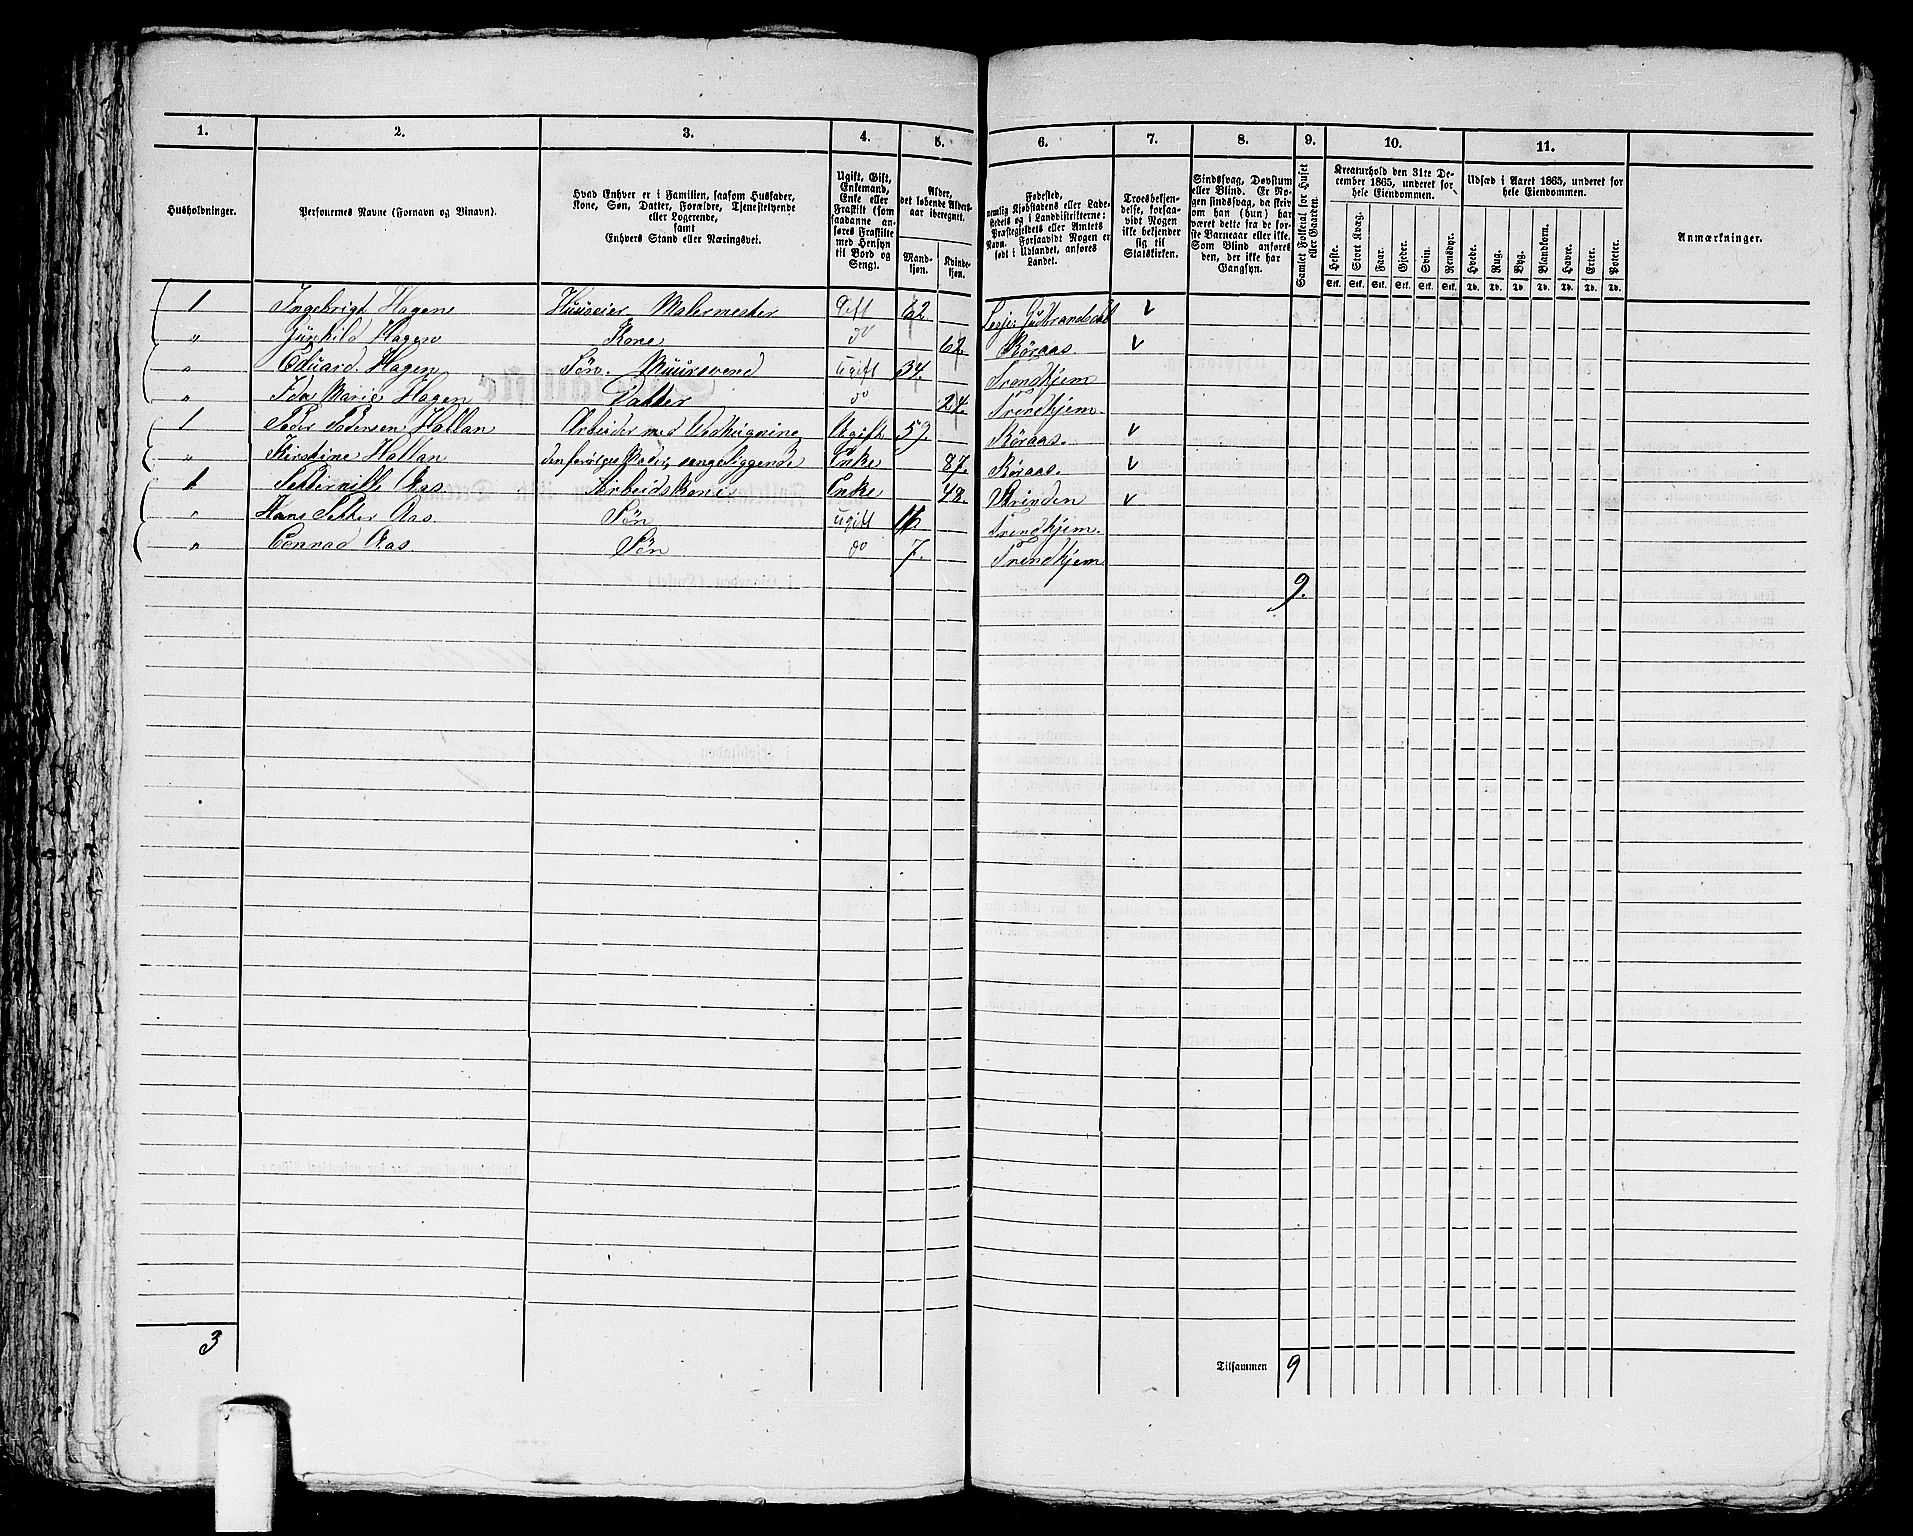 1. 2. 3. 4. 5. 6. 7. 8. 9. 10. 11.
Husholdninger.
Personernes Navne (Fornavn og Vinavn).
Hvad Enhver er i Familien, saasom Husfader,
Kone, Søn, Datter, Forældre, Tjenestetyende
eller Logerende,
samt
Enhvers Stand eller Næringsvei.
Ugift, Gift,
Enkemand,
Enke eller
Fraskilt (som
saadanne an-
føres Fraskilte
med Hensyn
til Bord og
Seng).
Alder,
det løbende Alders-
aar iberegnet.
Mand-
kjøn.
Kvinde-
kjøn.
Fødested,
nemlig Kjøbstadens eller Lade-
stedets og i Landdistrikterne:
Præstegjeldets eller Amtets
Navn. Forsaavidt Nogen er
født i Udlandet, anføres
Landet.
Troesbekjen-
delse, forsaa-
vidt Nogen
ikke bekjender
sig til
Statskirken.
Sindssvag, Døvstum
eller Blind. Er No-
gen sindssvag, da skriv
om han (hun) har
været dette fra de før-
ste Barneaar eller ikke.
Som Blind anføres
den, der ikke har
Gangsyn.
Samlet Folketal for Huset
eller Gaarden.
Kreaturhold den 31te De-
cember 1865, underet for
hele Eiendommen.
Heste. Stort Kvæg. Faar. Gjeder. Svin. Rensdyr.
Stk. Stk. Stk. Stk. Stk. Stk.
Udsæd i Aaret 1865, underet for
hele Eiendommen.
Hvede. Rug. Byg. Blandkorn. Havre. Erter. Poteter.
Td. Td. Td. Td. Td. Td. Td.
Anmærkninger.
1 Ingebrigt Hagen Huuseier Malermester Gift 62 Lesje Gudbrandsdal v
" Gunhild Hagen Kone do 62. Røraas v
" Eduard Hagen Søn. Muursvend ugift 34. Trondhjem
" Ida Marie Hagen Datter do 24. Trondhjem
1 Peder Pedersen Hallan Arbeider med Vedhugning Ugift 57. Røraas. v
" Kirstine Hallan Enke 87. Røraas. v
1 Petternille Aas Arbeidskone Enke 48. Strinden v
" Hans Petter Aas. Søn ugift 16. Trondhjem
" Conrad Aas. Søn do 7. Trondhjem
9.
3
Tilsammen 9